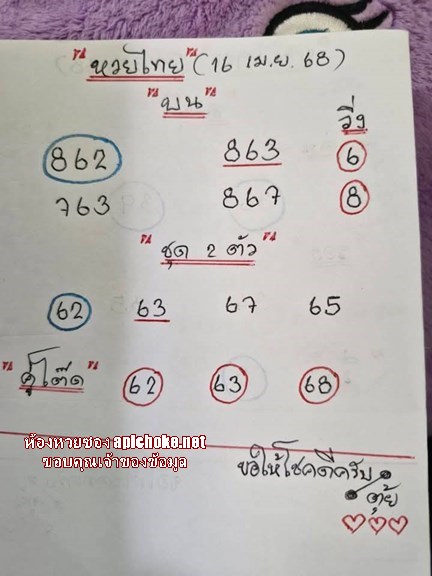 หวยไทย (16 เม.ย. 68)
บน
วิ่ง
862 863 6
763 867 8
ชุด 2 ตัว
62 63 67 65
คู่โต๊ด 62 63 68
ห้องหวยซอง apichoke.net
ขอบคุณเจ้าของข้อมูล
ขอให้โชคดีครับ
ตุ้ย